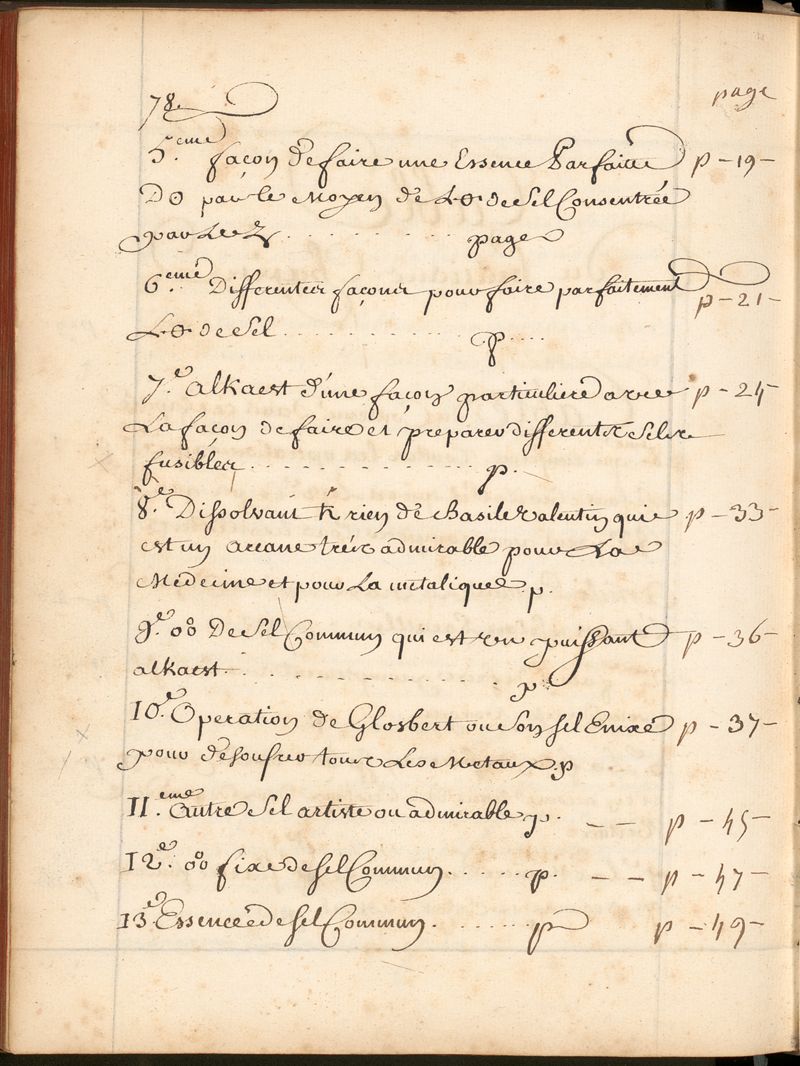 78
page
5.eme façon de faire une Essence Parfaitte p - 19 -
De par le Moyen de de Sel Consentrée
par Le page
6.eme Differentes façons pour faire parfaitement p - 21 -
de Sel p
7.e alkaest d'une façon particuliere avec p - 24
La façon de faire et preparer differents Sels
fusibles p.
8.e Dissolvant rien de Basile Valentin qui p - 33 -
est un arcane très admirable pour La
Medecine et pour La metalique p.
9.e De Sel Commun qui est un puissant p - 36 -
alkaest p
10.e Operation de Glosbert ou Son Sel Enixe p - 37 -
pour desoufrer tous Les Metaux. p
11.eme Autre Sel artiste ou admirable p. - - p - 45 -
12.e fixe de Sel Commun p. - - p - 47 -
13.e Essence de Sel Commun. p p - 49 -